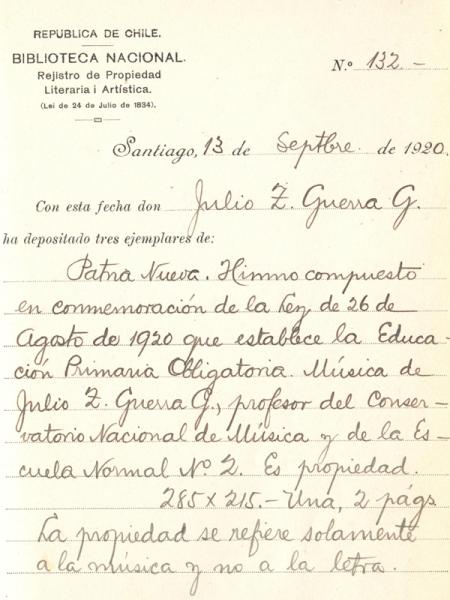 REPÚBLICA DE CHILE.
BIBLIOTECA NACIONAL.
Registro de Propiedad
Literaria i Artística.
(Lei de 24 de Julio de 1834).
N.º 132.-
Santiago, 13 de Septbre. de 1920.
Con esta fecha don Julio Z. Guerra G.
ha depositado tres ejemplares de:
Patria Nueva. Himno compuesto
en conmemoración de la Ley de 26 de
Agosto de 1920 que establece la Educa-
ción Primaria Obligatoria. Música de
Julio Z. Guerra G., profesor del Conser-
vatorio Nacional de Música y de la Es-
cuela Normal Nº 2. Es propiedad.
285 x 215.- Una, 2 págs
La propiedad se refiere solamente
a la música y no a la letra.